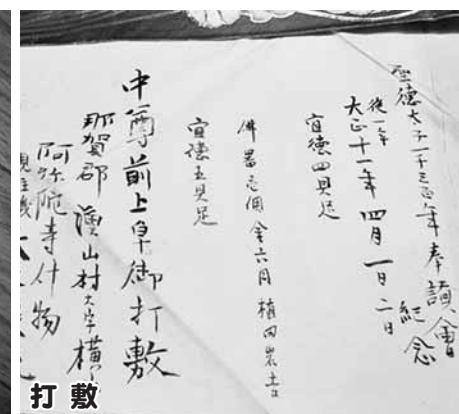 聖徳太子一千三百年奉讃會
紀念
後一年
大正十一年四月一日二日
宣徳四具足
佛器壱個金六円植田岩吉
宣徳五具足
中尊前上卓御打敷
那賀郡漁山村大字横
阿弥陀寺什物
現住職
打敷